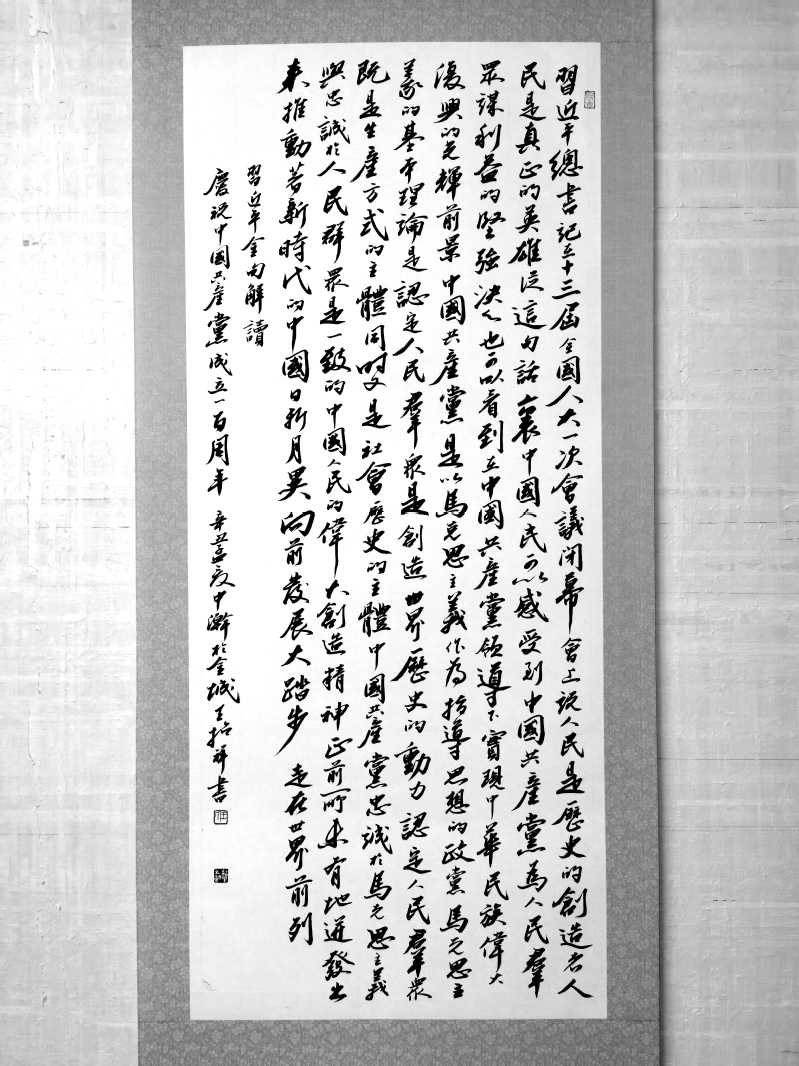 習近平總書記在十三屆全國人大一次會議閉幕會上說人民是歷史的創造者人
民是真正的英雄從這句話裏中國人民可以感受到中國共產黨為人民羣
眾謀利益的堅強決心也可以看到在中國共產黨領導下實現中華民族偉大
復興的光輝前景中國共產黨是以馬克思主義作為指導思想的政黨馬克思主
義的基本理論是認定人民羣眾是創造世界歷史的動力認定人民羣眾
既是生產方式的主體同時又是社會歷史的主體中國共產黨忠誠於馬克思主義
與忠誠於人民群眾是一致的中國人民的偉大創造精神正前所未有地迸發出
來推動著新時代的中國日新月異向前發展大踏步走在世界前列
習近平金句解讀
慶祝中國共產黨成立一百周年辛丑孟夏中澣於金城王招祥書